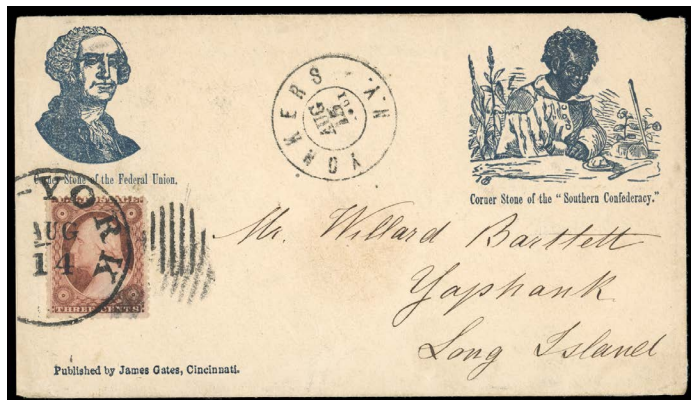 Corner Stone of the Federal Union.
YONKERS N.Y.
AUG
15
Corner Stone of the "Southern Confederacy."
YORK
AUG
14
THREE CENTS
Mr. Willard Bartlett
Yaphank
Long Island
Published by James Gates, Cincinnati.